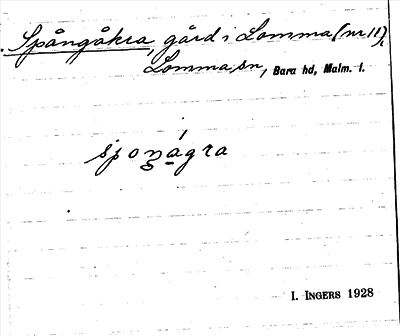 Spångåkra, gård i Lomma (nr 11),
Lomma sn, Bara hd, Malm. l.
sponágra
I. INGERS 1928